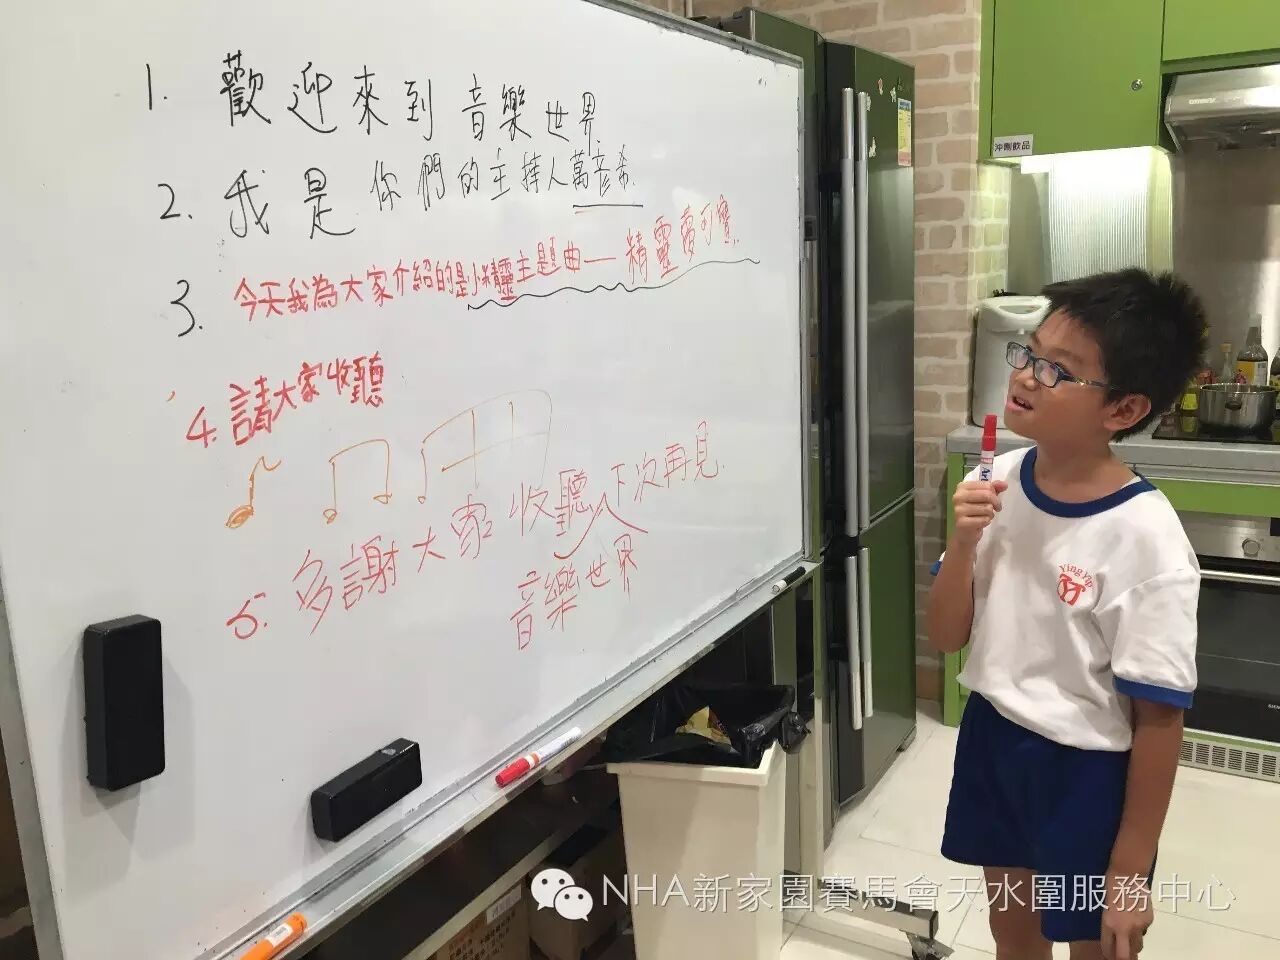 1. 歡迎來到音樂世界
2. 我是你們的主持人萬彥希.
3. 今天我為大家介紹的是小精靈主題曲—精靈夢可寶.
4. 請大家收聽
5. 多謝大家收聽 下次再見
音樂世界
沖調飲品
Ying Yip
NHA新家園賽馬會天水圍服務中心